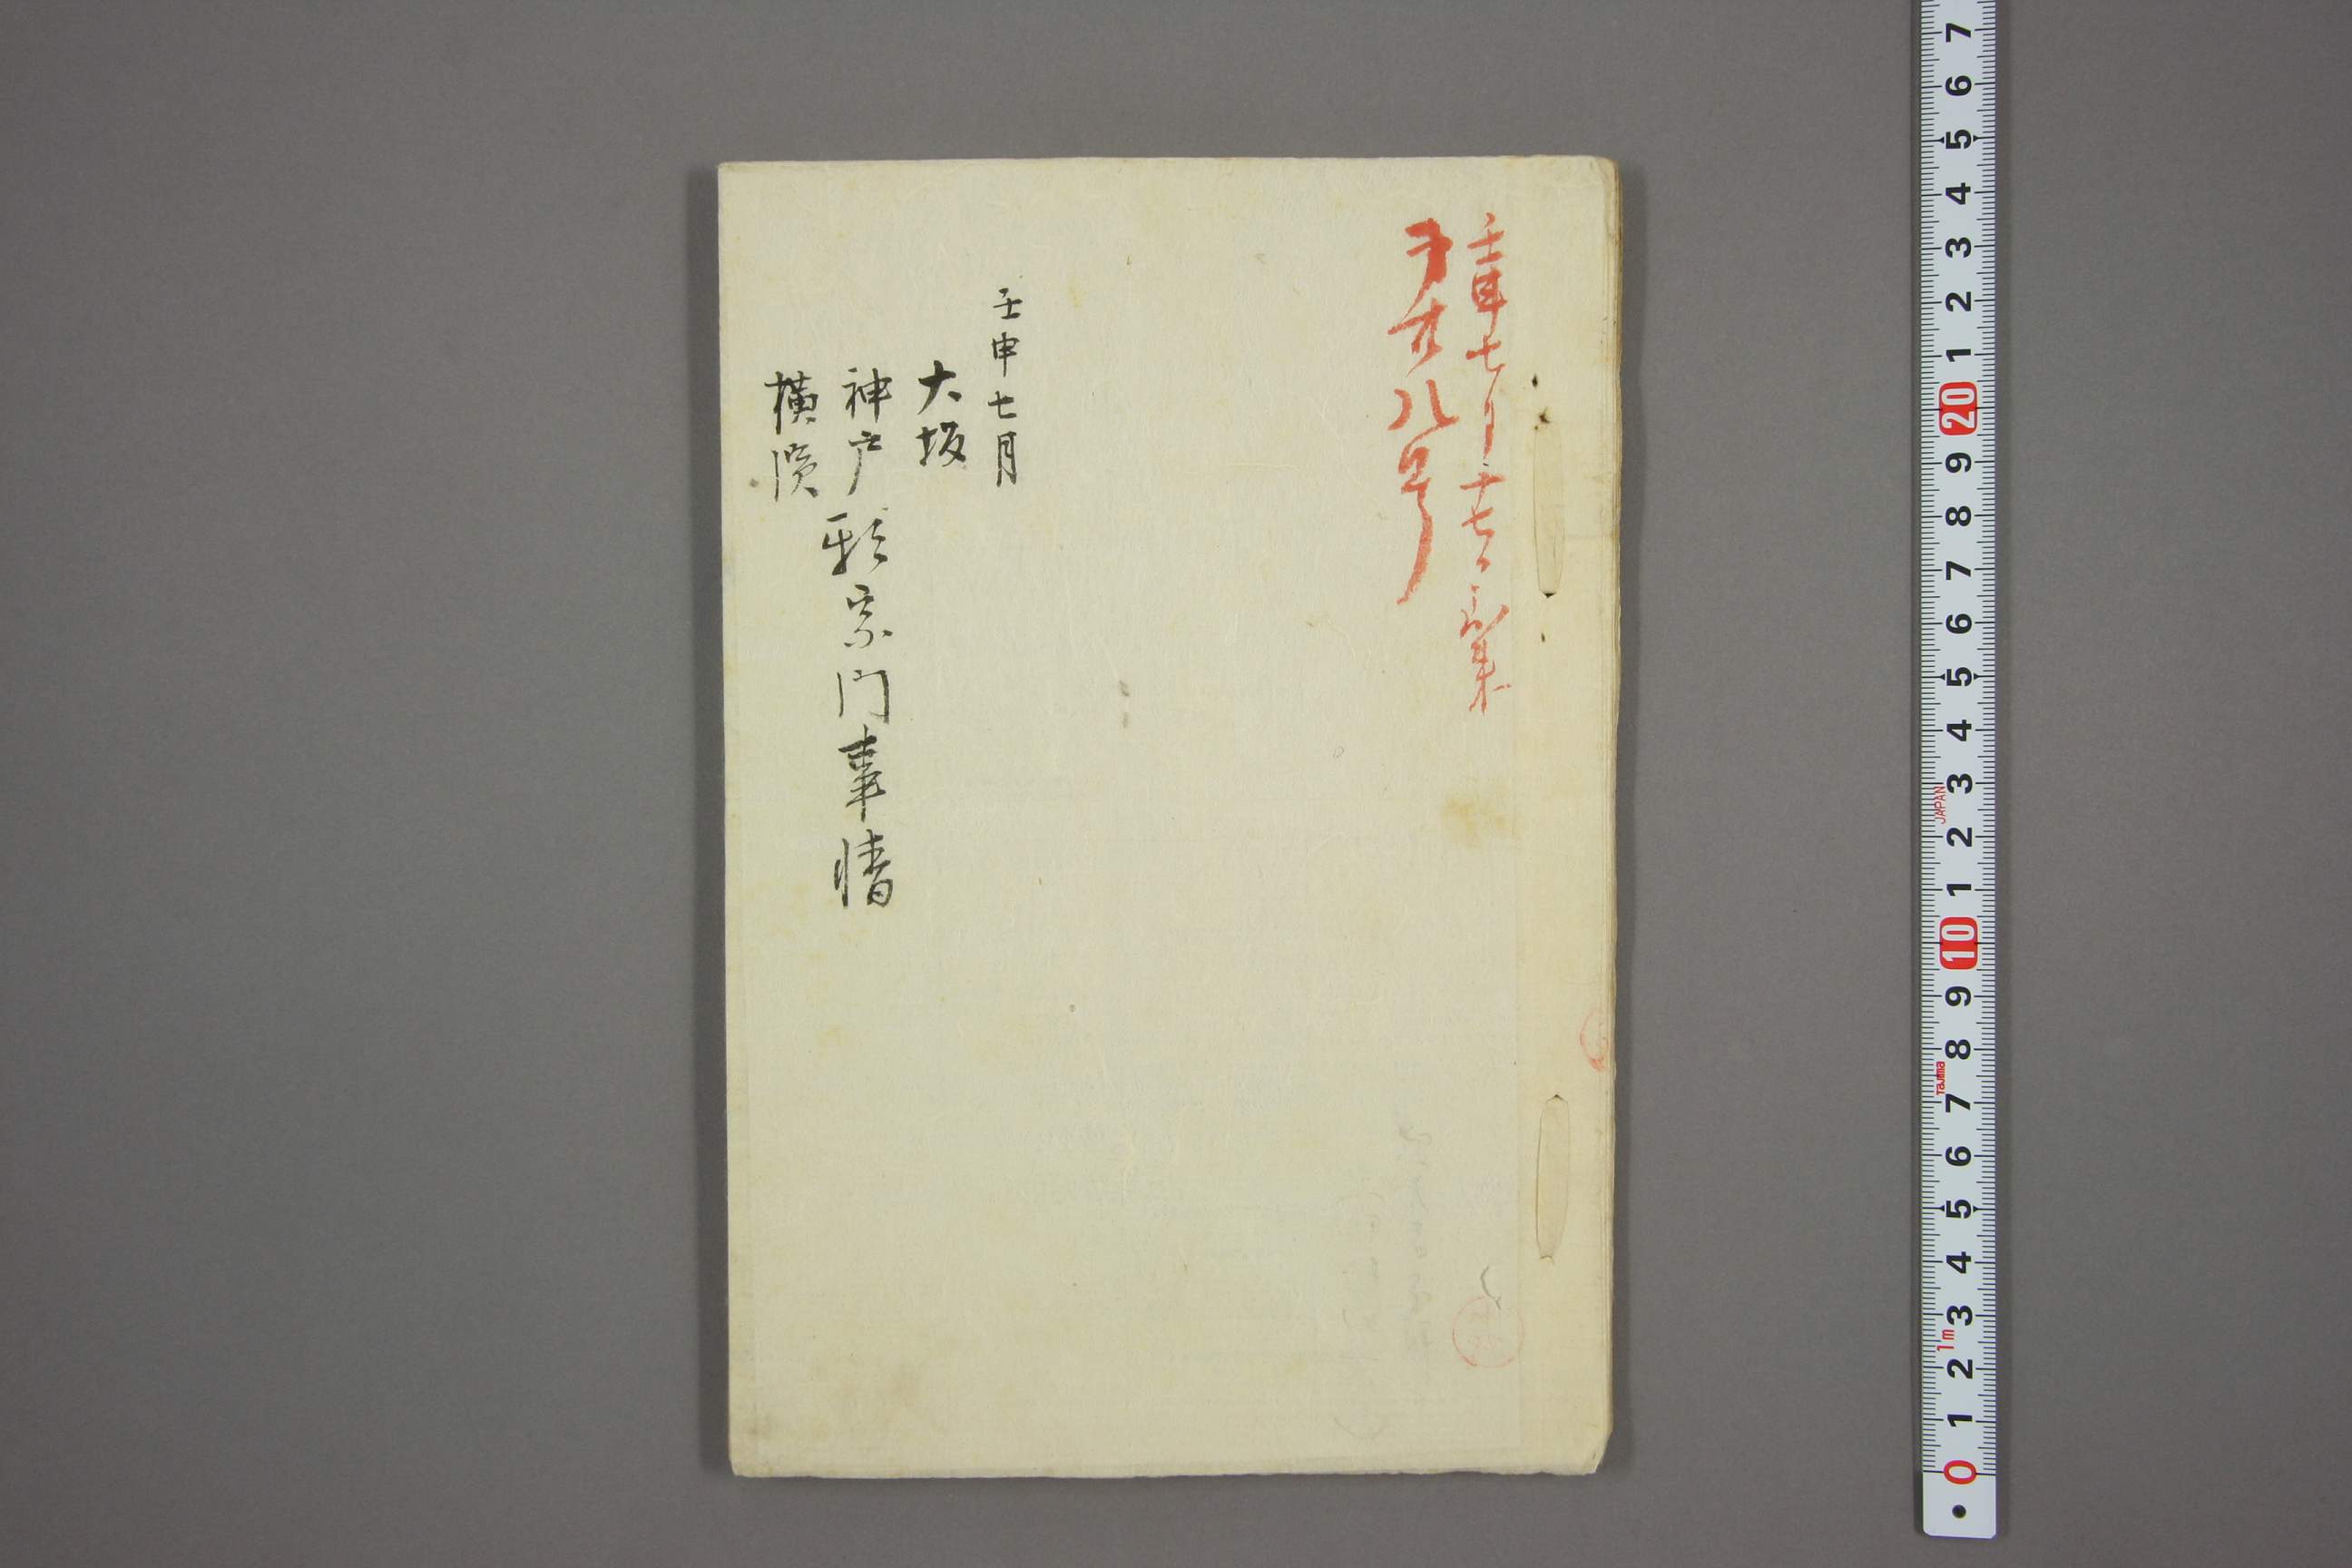 壬申七月十七日到来
第六八号
壬申七月
大坂
神戸
横濱
耶宗門事情
7
6
5
4
3
2
1
20
9
8
7
6
5
4
3
JAPAN
2
1
10
9
8
Tajima
7
6
5
4
3
1m
2
1
0